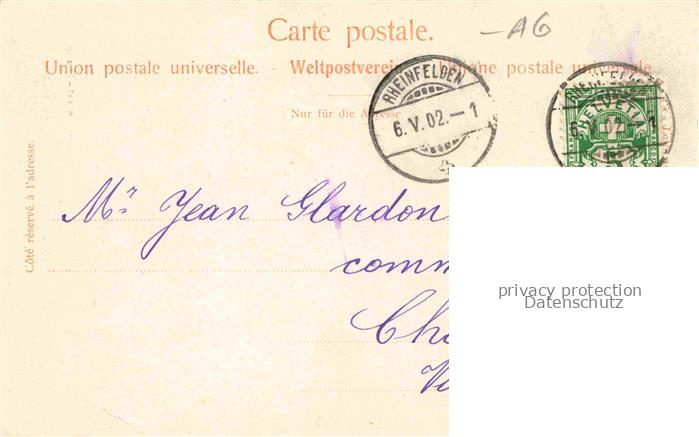 Carte postale.
-AG
Union postale universelle. - Weltpostverein postale
RHEINFELDEN
6.V.02.-1
HELVETIA
Nur für die Adresse.
Côté réservé à l'adresse.
Mr Jean Glardon
comm
Ch
privacy protection
Datenschutz